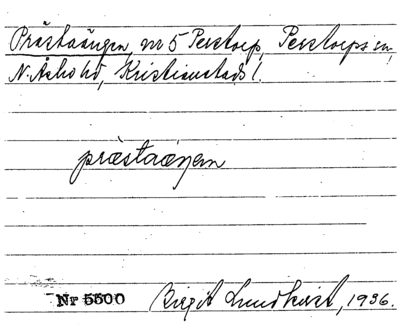 Prästaängen, nr 5 Perstorp, Perstorps sn,
N. Åsbo hd, Kristianstads l.
præstaæŋen
Nr 5500 Birgit Lundkvist, 1936.